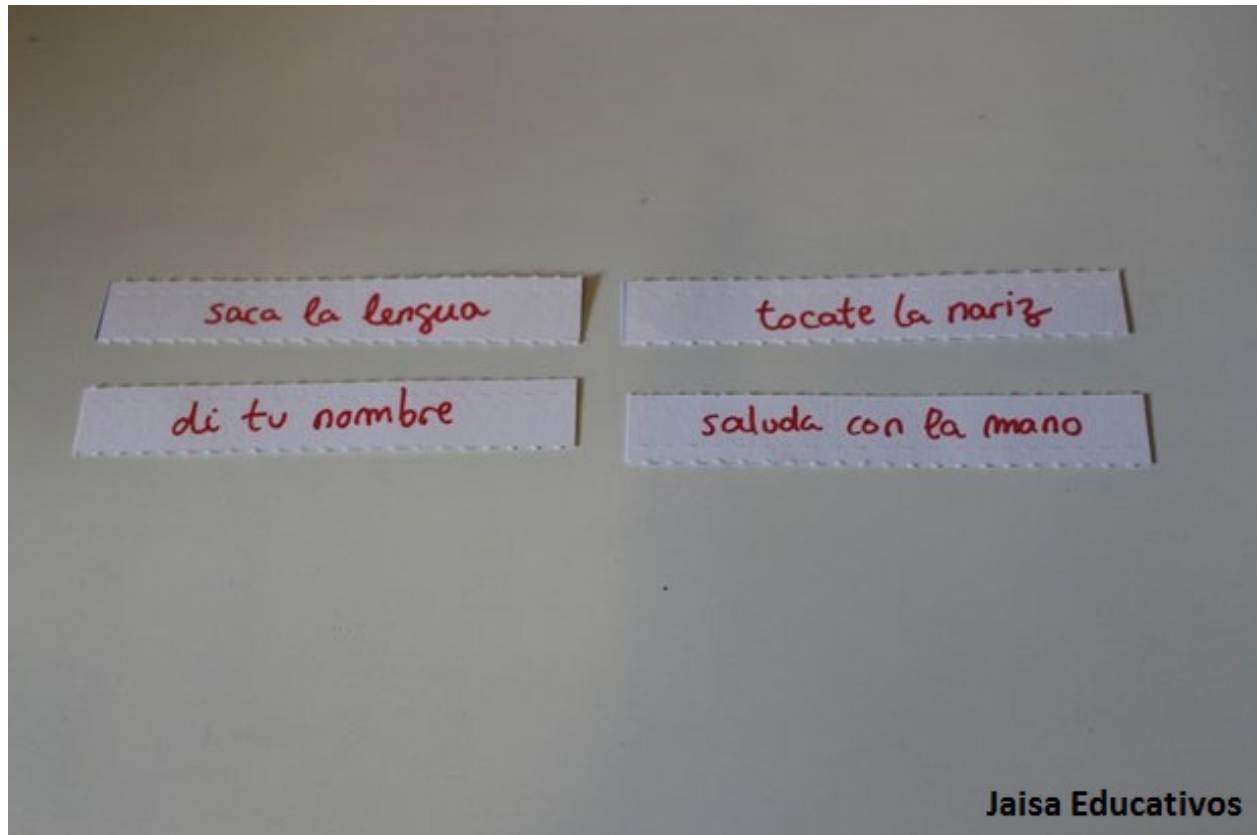 saca la lengua
tocate la nariz
di tu nombre
saluda con la mano
Jaisa Educativos